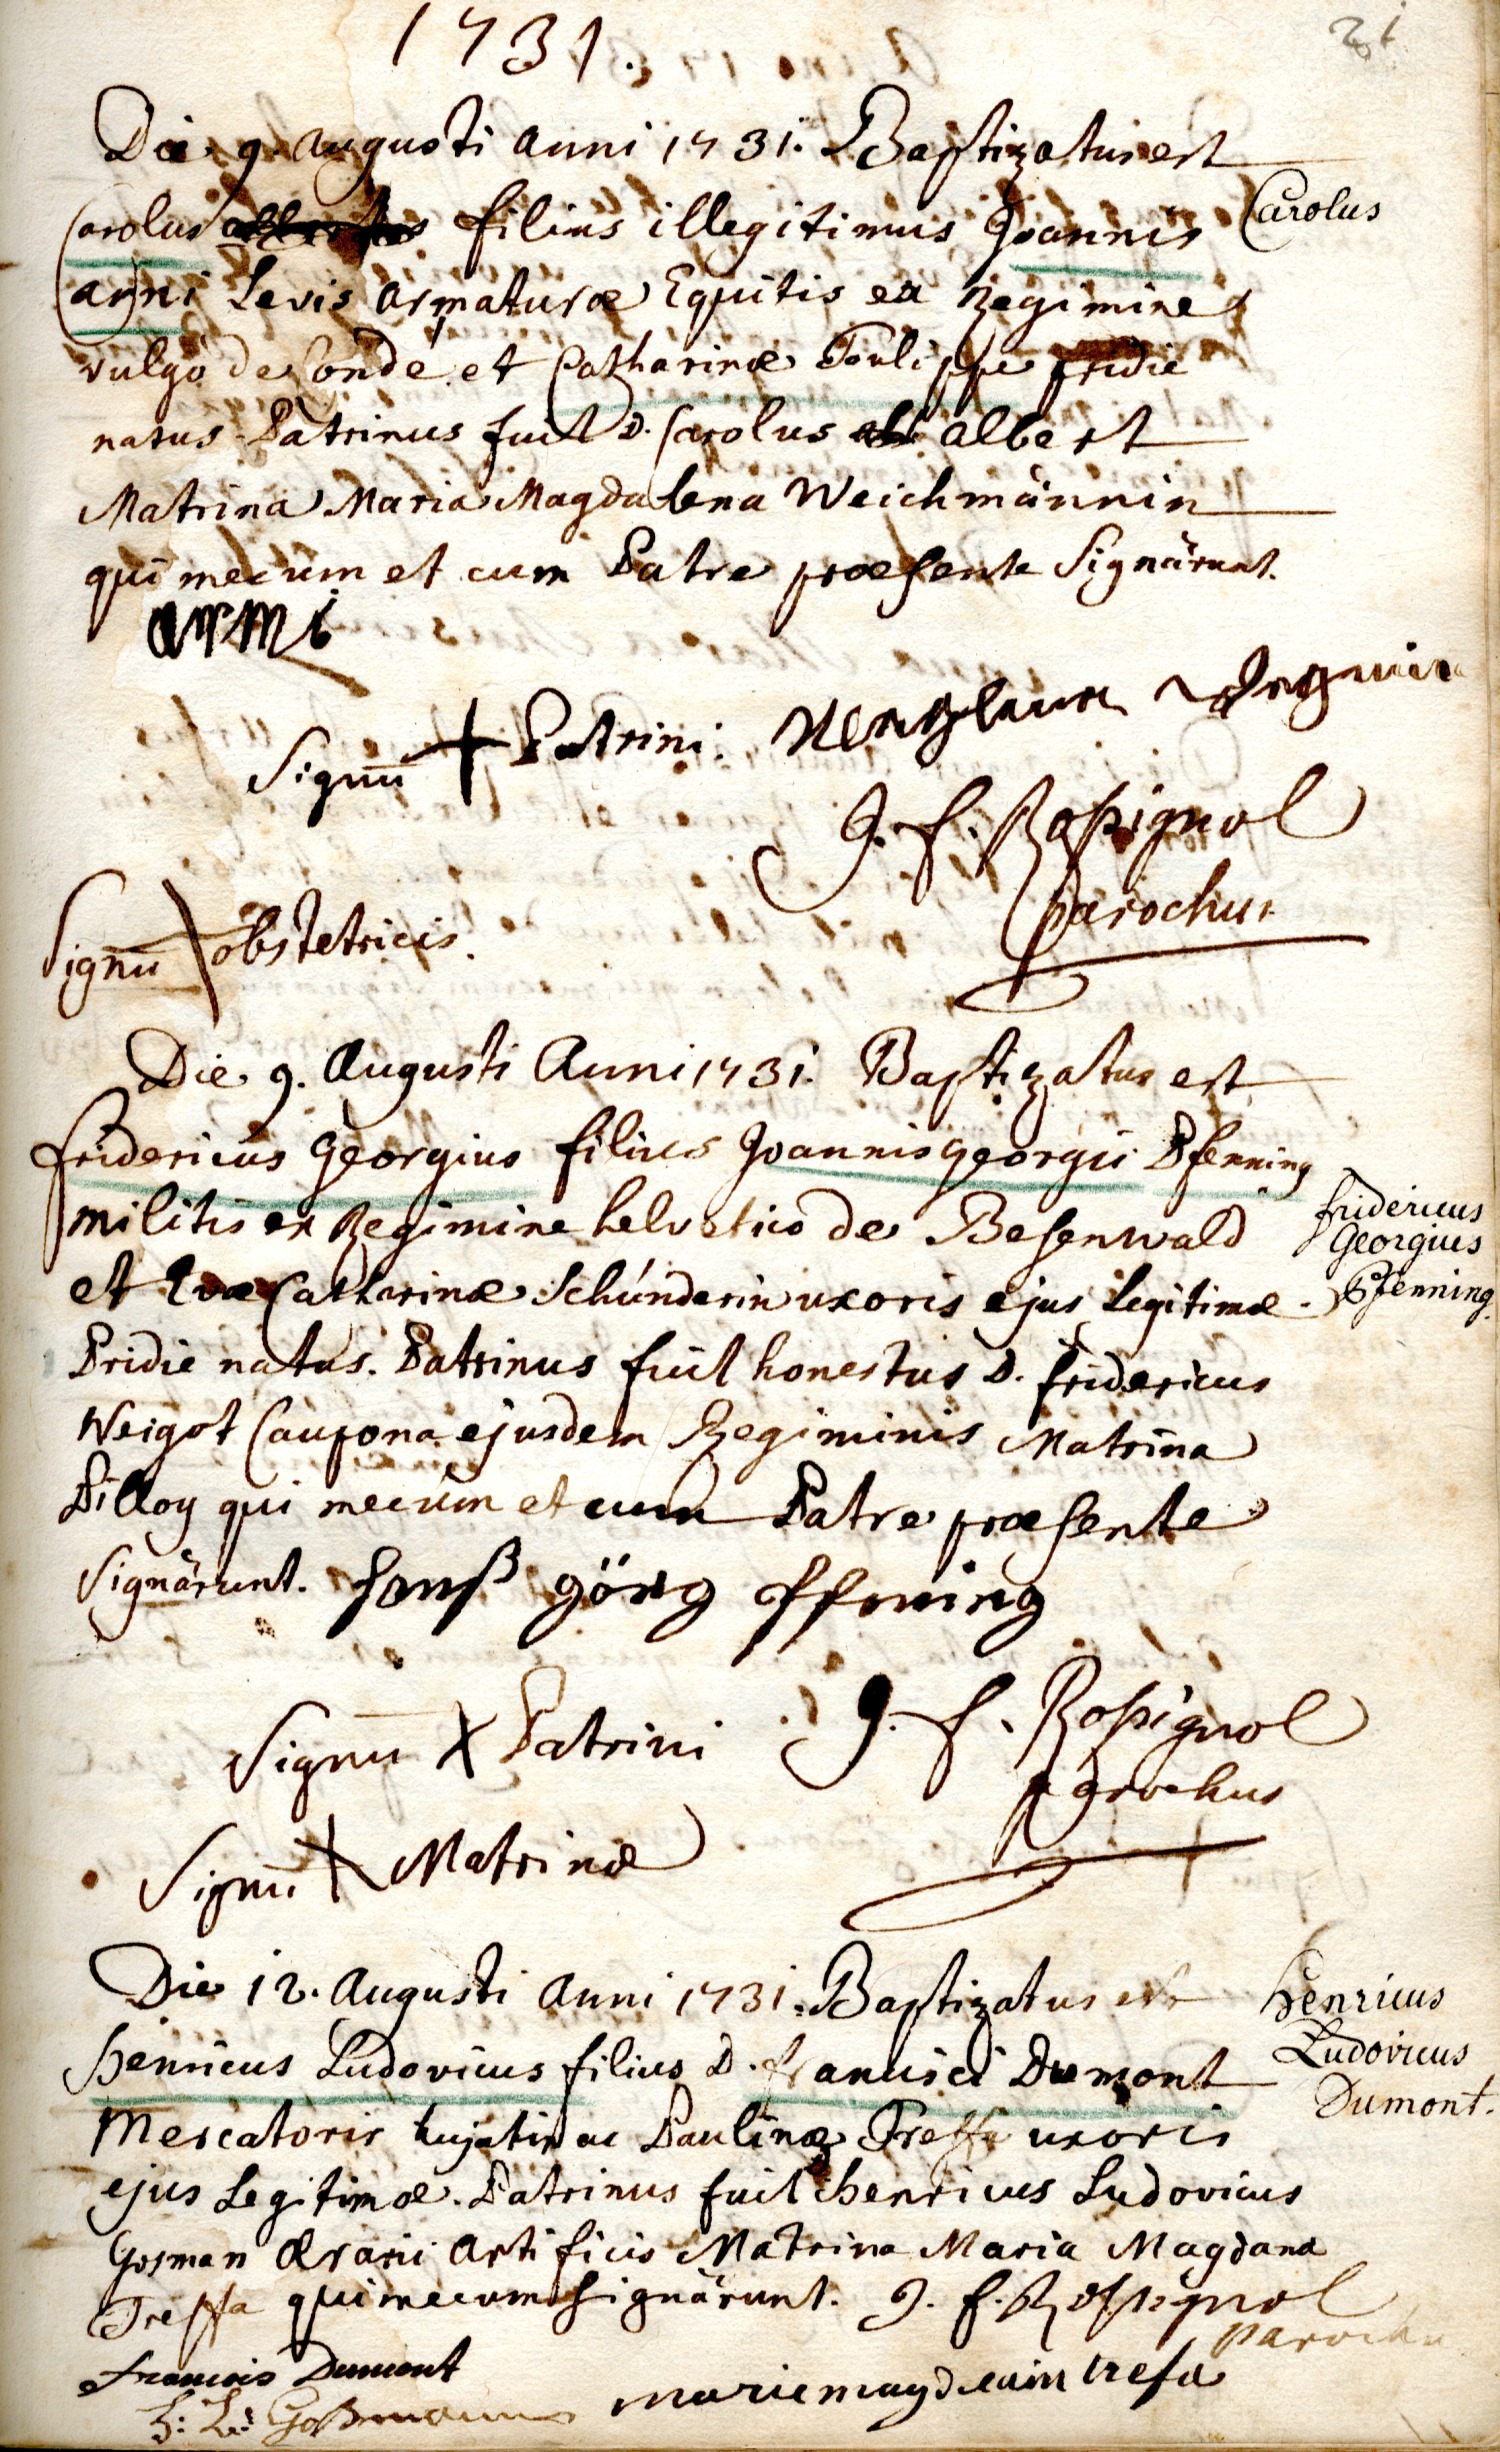 1731.
21
Die 9. Augusti Anni 1731. Baptizatus est
Carolus filius illegitimus Joannis
Carolus
armi Levis armaturæ Equitis ex Regimine
vulgò de Condé et Catharinæ Toulippe pridie
natus. Patrinus fuit D. Carolus albert
Matrina Maria Magdalena Weichmännin
qui mecum et cum Patre præsente Signârunt.
armi
Signū + Patrini.
J. f. Roßignol
Parochus
Signū + obstetricis.
Die 9. Augusti Anni 1731. Baptizatus est
fridericus Georgius filius Joannis Georgii Pfenning
militis ex Regimine helvetico de Besenwald
fridericus
Georgius
Pfenning.
et Evæ Catharinæ Schúnderin uxoris ejus Legitimæ.
Pridie natus. Patrinus fuit honestus D. fridericus
Weigot Caupona ejusdem Regiminis Matrina
Billoy qui mecum et cum Patre præsente
Signârunt. Hanß görg Pfening
Signū + Patrini J. f. Roßignol
Parochus
Signū + Matrinæ
Die 12. Augusti Anni 1731. Baptizatus est
Henricus Ludovicus filius D. francisci Dumont
Henricus
Ludovicus
Dumont.
Mercatoris hujatis ac Paulinæ Treffa uxoris
ejus Legitimæ. Patrinus fuit Henricus Ludovicus
Gosman Ærarii Artificis Matrina Maria Magdana
Treffa qui mecum Signârunt. J. f. Roßignol
Parochu
francois Dumont
H: L: Goßmann
marie magdleain trefa